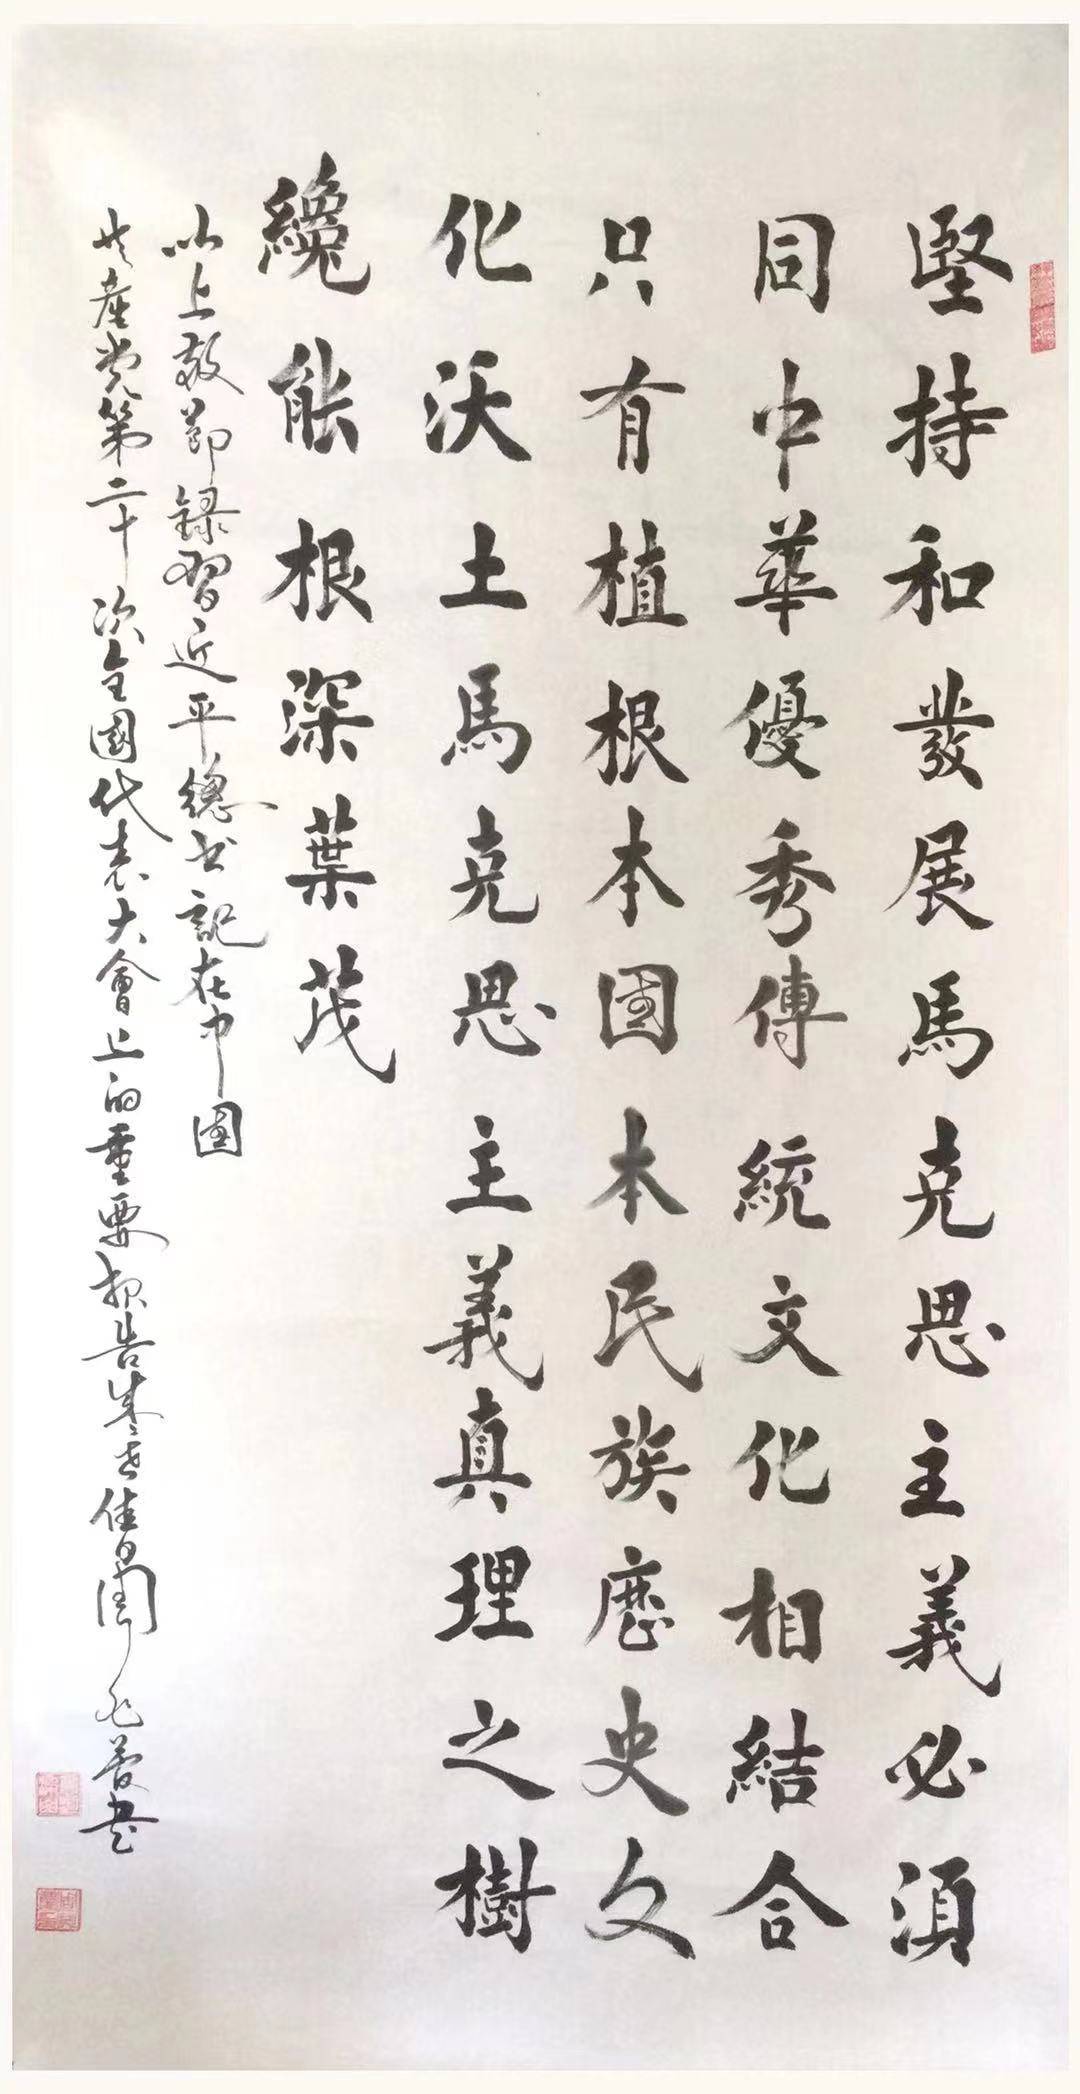 堅持和發展馬克思主義必須
同中華優秀傳統文化相結合
只有植根本國本民族歷史文
化沃土馬克思主義真理之樹
纔能根深葉茂
以上敬節録習近平總书記在中國
共產党第二十次全國代表大會上的重要报告